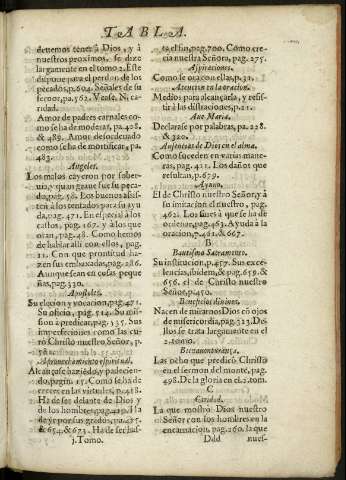 TABLA.
deuemos tener à Dios, y à
nuestros proximos, se dize
largamente en el tomo 2. Este
dispone para el perdon de los
pecados, p. 604. Señales de su
feruor, pa. 562. Vease, N. ca-
ridad.
Amor de padres carnales co-
mo se ha de moderar, pa. 408.
& 489. Amor desordenado
como se ha de mortificar, pa.
483.
Angeles.
Los malos cayeron por sober-
uia, y quan graue fue su peca-
do, pag. 58. Los buenos assis-
ten à los tentados para su ayu-
da, pag. 471. En especial à los
castos, pag. 167. y à los que
oran, pag. 48. Como hemos
de hablar alli con ellos, pag.
11. Con que prontitud ha-
zen sus embaxadas, pag. 286.
Aunque sean en cosas peque
ñas, pag. 330.
Apostoles.
Su elecion y vocacion, pag. 471.
Su oficio, pag. 514. Su mis-
sion à predicar, pag. 535. Sus
imperfecciones como las cu-
rò Christo nuestro Señor, p.
58
Aprouechamiento espiritual.
Alcançase haziẽdo, y padecien-
do, prolog. 15. Como se ha de
crecer en las virtudes, p. 418.
Ha de ser delante de Dios y
de los hombres, pag. 420. Ha
de yr por sus grados, pa. 275.
& 654. & 673. Ha de ser has-
j. Tomo.
ta el fin, pag. 700. Como cre-
cia nuestra Señora, pag. 275.
Aspiraciones.
Como se ora con ellas, p. 31.
Atencion en la oracion.
Medios para alcançarla, y resis-
tir à las distracciones, p. 21.
Aue Maria.
Declarase por palabras, pa. 228.
& 320.
Ausencias de Dios en el alma.
Como suceden en varias mane-
ras, pag. 421. Los daños que
resultan, p. 679.
Ayuno.
El de Christo nuestro Señor, y à
su imitacion el nuestro, pag.
462. Los fines à que se ha de
ordenar, pag. 463. Ayuda à la
oracion, p. 461. & 667.
B
Bautismo Sacramento.
Su institucion, p. 457. Sus exce-
lencias, ibidem, & pag. 659. &
656. el de Christo nuestro
Señor, p. 450.
Beneficios diuinos.
Nacen de mirarnos Dios cõ ojos
de misericordia, pag. 323. De-
llos se trata largamente en el
2. tomo.
Bienauenturança.
Las ocho que predicò Christo
en el sermon del monte, pag.
498. De la gloria en el 2. tom.
C
Caridad.
La que mostrò Dios nuestro
Señor con los hombres en la
encarnacion, pag. 260. la que
Ddd nues-